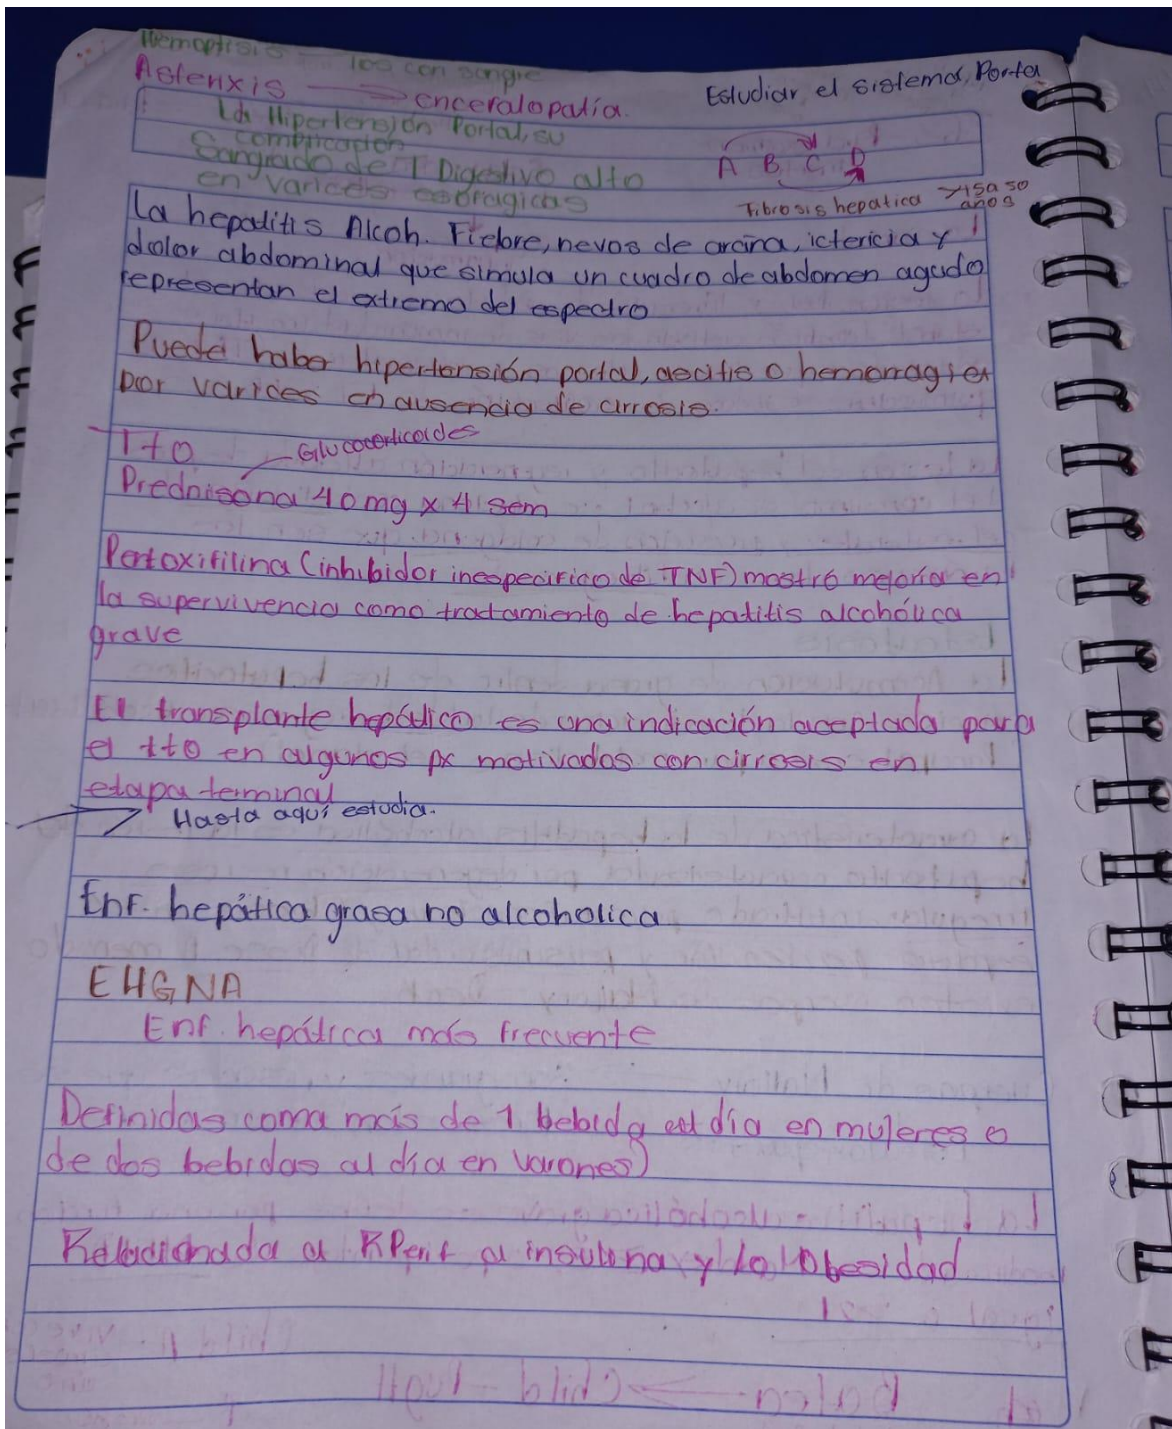 Hemoptisis — Tos con sangre
Asterixis → encefalopatía.
Estudiar el sistema Porta
La Hipertensión Portal, su
complicación
Sangrado de T Digestivo alto
en varices esofragicas
A B C D
Fibrosis hepatica > 45 a 50
años
La hepatitis Alcoh. Fiebre, nevos de araña, ictericia y
dolor abdominal que simula un cuadro de abdomen agudo
representan el extremo del espectro
Puede haber hipertensión portal, ascitis o hemorragia
por varices en ausencia de cirrosis.
Tto
Glucocorticoides
Prednisona 40 mg x 4 sem
Pentoxifilina (inhibidor inespecifico de TNF) mostró mejoría en
la supervivencia como tractamiento de hepatitis alcohólica
grave
El transplante hepático es una indicación aceptada para
el tto en algunos px motivados con cirrosis en
etapa terminal
Hasta aquí estudia.
Enf. hepática grasa no alcoholica
EHGNA
Enf. hepática más frecuente
Definidas coma más de 1 bebida al día en mujeres o
de dos bebidas al día en varones)
Relacionada a a insulina y la Obesidad